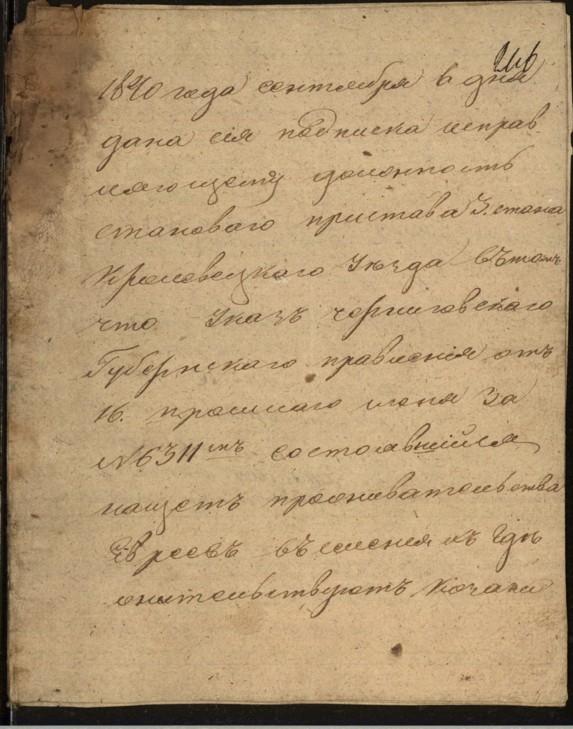 246
1840 года сентября 6 дня
дана сія подписка исправ
ляющему должность
становаго пристава 3. стана
Кролевецкаго Уѣзда въ томъ
что Указъ черниговскаго
Губернскаго правленія отъ
16. прошлаго іюня за
№ 6311мъ состоявшійся
нащетъ проживательства
Евреевъ въ имѣніяхъ гдѣ
жительствуютъ Козаки